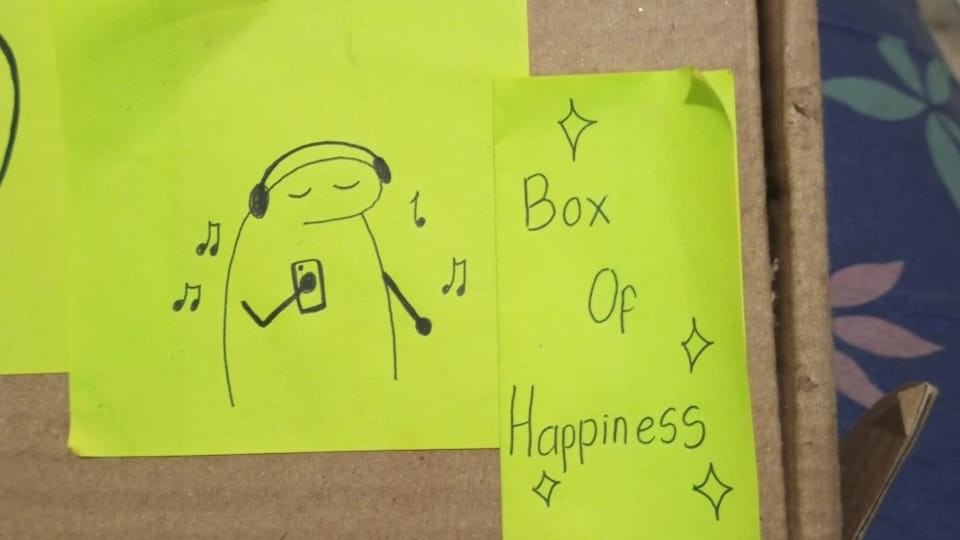 Box
Of
Happiness